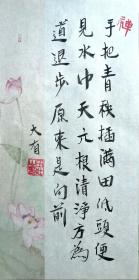 禅
手把青秧插满田低頭便
見水中天六根清淨方為
道退步原来是向前
大有